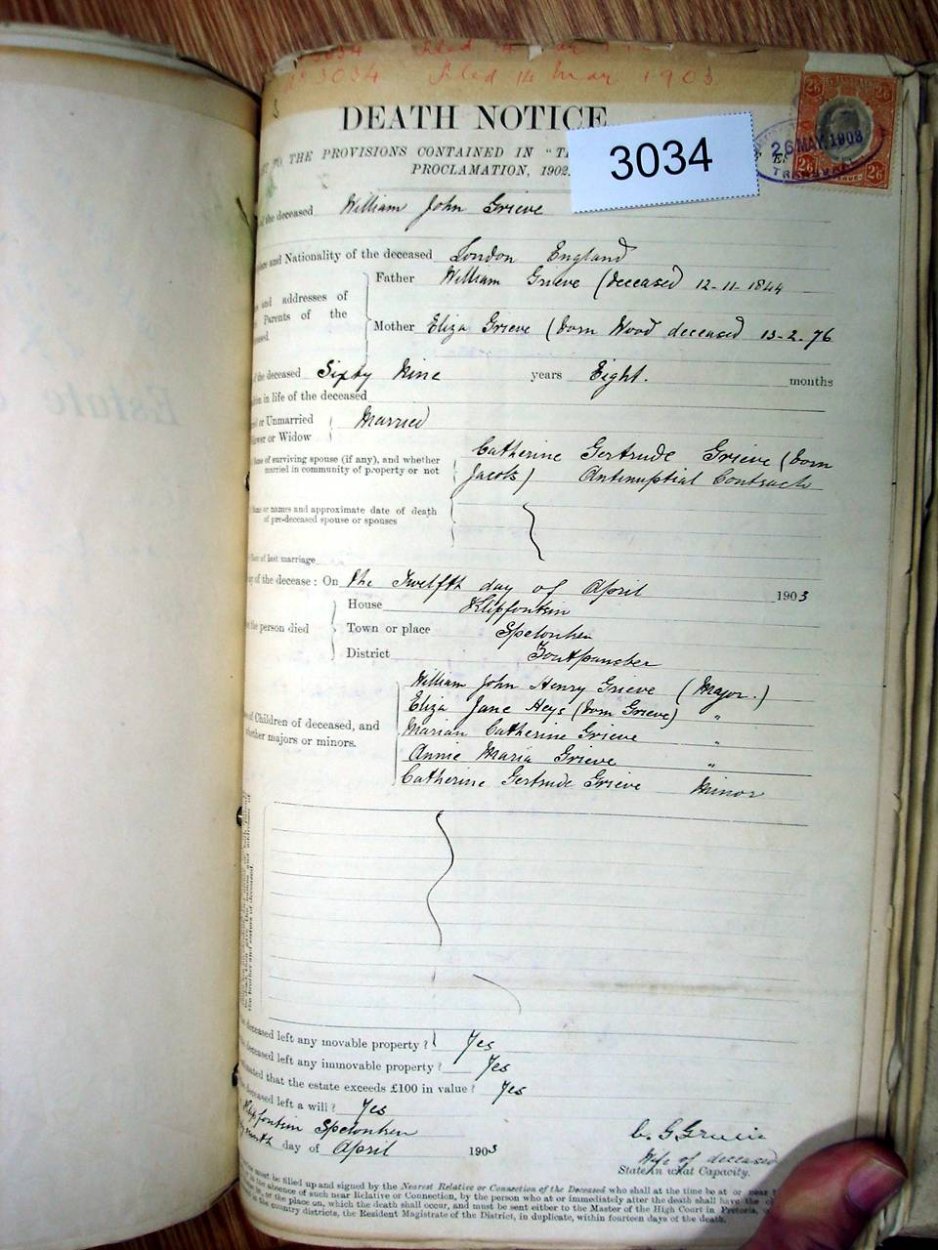 3034 Filed 14 Mar 1903
DEATH NOTICE
TO THE PROVISIONS CONTAINED IN "T
PROCLAMATION, 1902.
3034
2/6 2/6
26 MAY. 1903
TRANSVAAL
2/6 2/6
of the deceased William John Grieve
and Nationality of the deceased London England
and addresses of
Parents of the
Father William Grieve (deceased 12-11-1844
Mother Eliza Grieve (born Wood deceased 13-2-76
of the deceased Sixty Nine years Eight. months
in life of the deceased
or Unmarried
or Widow
Married
Name of surviving spouse (if any), and whether
married in community of property or not
Catherine Gertrude Grieve (born
Jacobs) Antinuptial Contract
or names and approximate date of death
of pre-deceased spouse or spouses
of last marriage
of the decease: On the Twelfth day of April 1903
the person died
House Klipfontein
Town or place Spelonken
District Zoutpansber
of Children of deceased, and
whether majors or minors.
William John Henry Grieve (Major.)
Eliza Jane Heys (born Grieve) "
Marian Catherine Grieve "
Annie Maria Grieve "
Catherine Gertrude Grieve Minor
deceased left any movable property? Yes
deceased left any immovable property? Yes
that the estate exceeds £100 in value? Yes
deceased left a will? Yes
Klipfontein Spelonken
day of April 1903
C. G. Grieve
Wife of deceased
State in what Capacity.
must be filled up and signed by the Nearest Relative or Connection of the Deceased who shall at the time be at or near
absence of such near Relative or Connection, by the person who at or immediately after the death shall have the
or the place on, which the death shall occur, and must be sent either to the Master of the High Court in Pretoria,
country districts, the Resident Magistrate of the District, in duplicate, within fourteen days of the death.